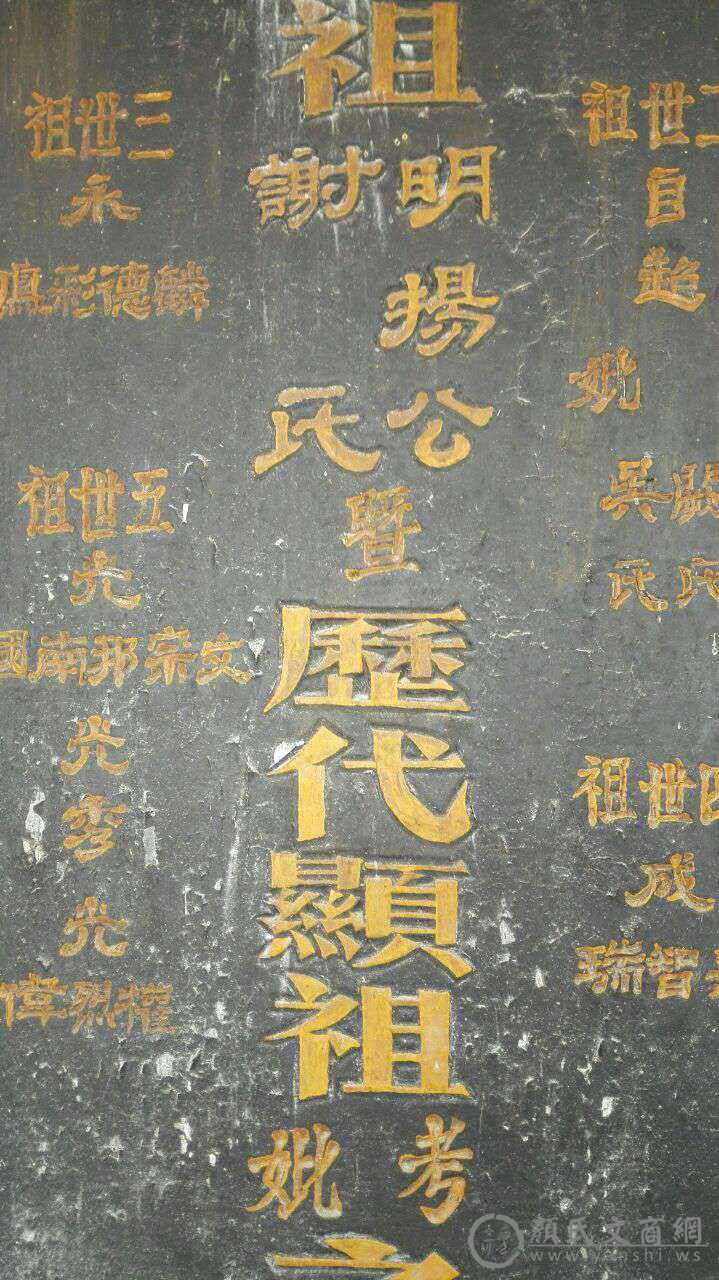 二世祖
自
超
妣
吳
氏氏
四世祖
成
智瑞
祖
明揚公
謝氏
暨
歷代顯祖
考妣
之
三世祖
永
麟德彩
五世祖
光
文宗邦南國
光
秀
光
權烈偉
顏氏文商網
www.yanshi.ws